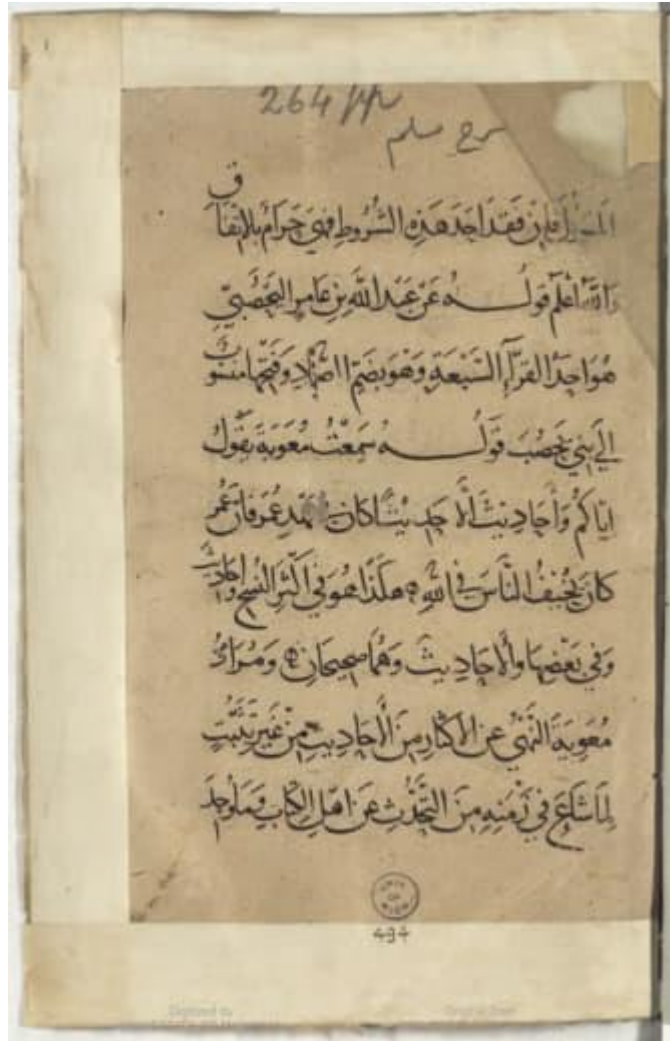 264 pp
شرح مسلم
المسايل فإن فقد احد هذه الشروط فهي حرام بالاتفاق
والله اعلم قوله عن عبد الله بن عامر اليحصبي
هو احد القرّآء السّبعة وهو بضم الصاد وفتحها منسوب
الي بني يحصب قوله سمعت معوية يقول
اياكم وأحاديث ألا حديثا كان في عهد عمر فان عمر
كان يخيف الناس في الله هكذا هو في اكثر النسخ واحاديث
وفي بعضها والاحاديث وهما صحيحان ومراد
معوية النهي عن الاكثار من الأحاديث من غير تثبت
لما شاع في زمنه من التحدث عن اهل الكتاب وما وجد
494